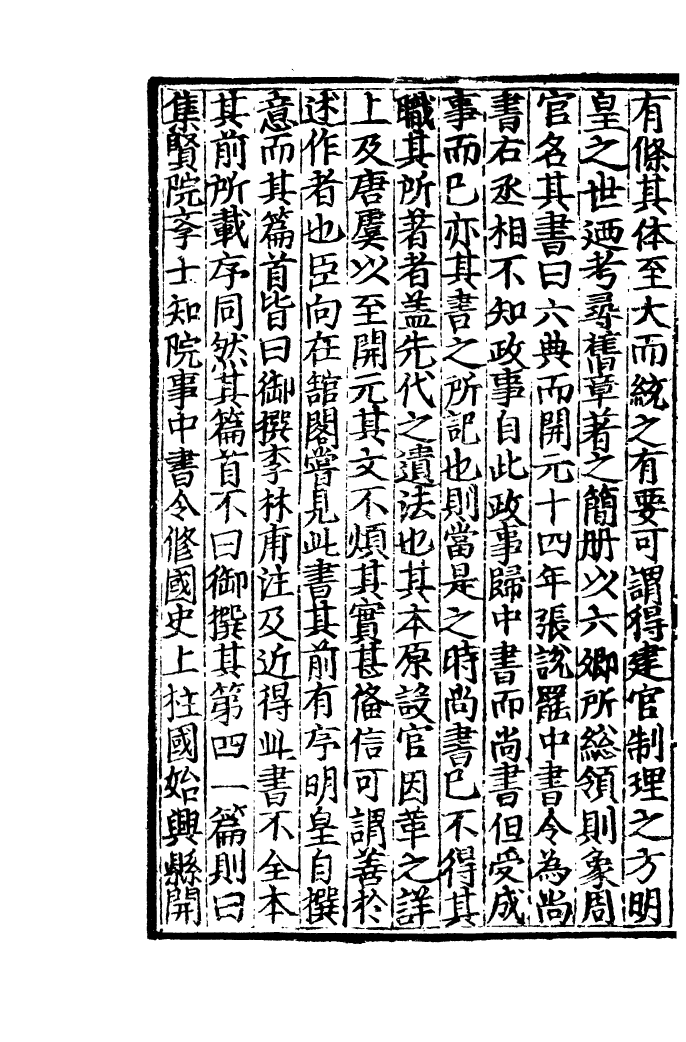 有條其体至大而統之有要可謂得建官制理之方明
皇之世廼考尋舊章著之簡册以六卿所総領則象周
官名其書曰六典而開元十四年張說罷中書令為尚
書右丞相不知政事自此政事歸中書而尚書但受成
事而已亦其書之所記也則當是之時尚書已不得其
職其所著者盖先代之遺法也其本原設官因革之詳
上及唐虞以至開元其文不煩其實甚俻信可謂善於
述作者也臣向在舘閣甞見此書其前有序明皇自撰
意而其篇首皆曰御撰李林甫注及近得此書不全本
其前所載序同然其篇首不曰御撰其第四一篇則曰
集賢院李士知院事中書令修國史上柱國始興縣開